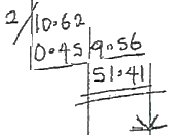 2/ 10.62
0.45 9.56
51.41